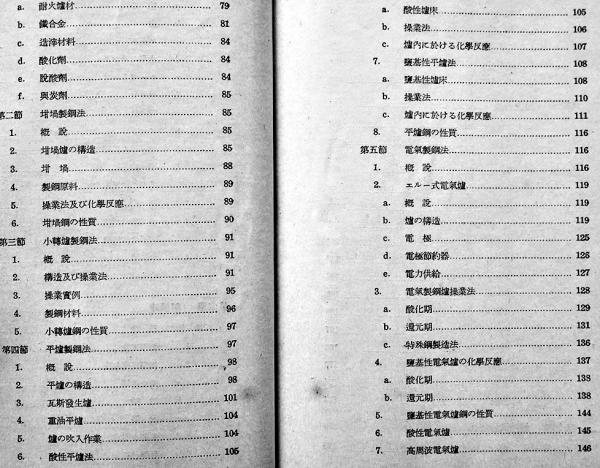 a. 耐火爐材……79
b. 鐵合金……81
c. 造滓材料……84
d. 酸化劑……84
e. 脫酸劑……84
f. 與炭劑……85
第二節 坩堝製鋼法……85
1. 概說……85
2. 坩堝爐の構造……85
3. 坩堝……88
4. 製鋼原料……89
5. 操業法及び化學反應……89
6. 坩堝鋼の性質……90
第三節 小轉爐製鋼法……91
1. 概說……91
2. 構造及び操業法……91
3. 操業實例……95
4. 製鋼材料……96
5. 小轉爐鋼の性質……97
第四節 平爐製鋼法……97
1. 概說……98
2. 平爐の構造……98
3. 瓦斯發生爐……101
4. 重油平爐……104
5. 爐の吹入作業……104
6. 酸性平爐法……105
a. 酸性爐床……105
b. 操業法……106
c. 爐內に於ける化學反應……107
7. 鹽基性平爐法……108
a. 鹽基性爐床……108
b. 操業法……110
c. 爐內に於ける化學反應……111
8. 平爐鋼の性質……116
第五節 電氣製鋼法……116
1. 概說……116
2. エルー式電氣爐……119
a. 概說……119
b. 爐の構造……119
c. 電極……125
d. 電極節約器……126
e. 電力供給……127
3. 電氣製鋼爐操業法……128
a. 酸化期……129
b. 還元期……131
c. 特殊鋼製造法……136
4. 鹽基性電氣爐の化學反應……137
a. 酸化期……138
b. 還元期……138
5. 鹽基性電氣爐鋼の性質……144
6. 酸性電氣爐……145
7. 高周波電氣爐……146